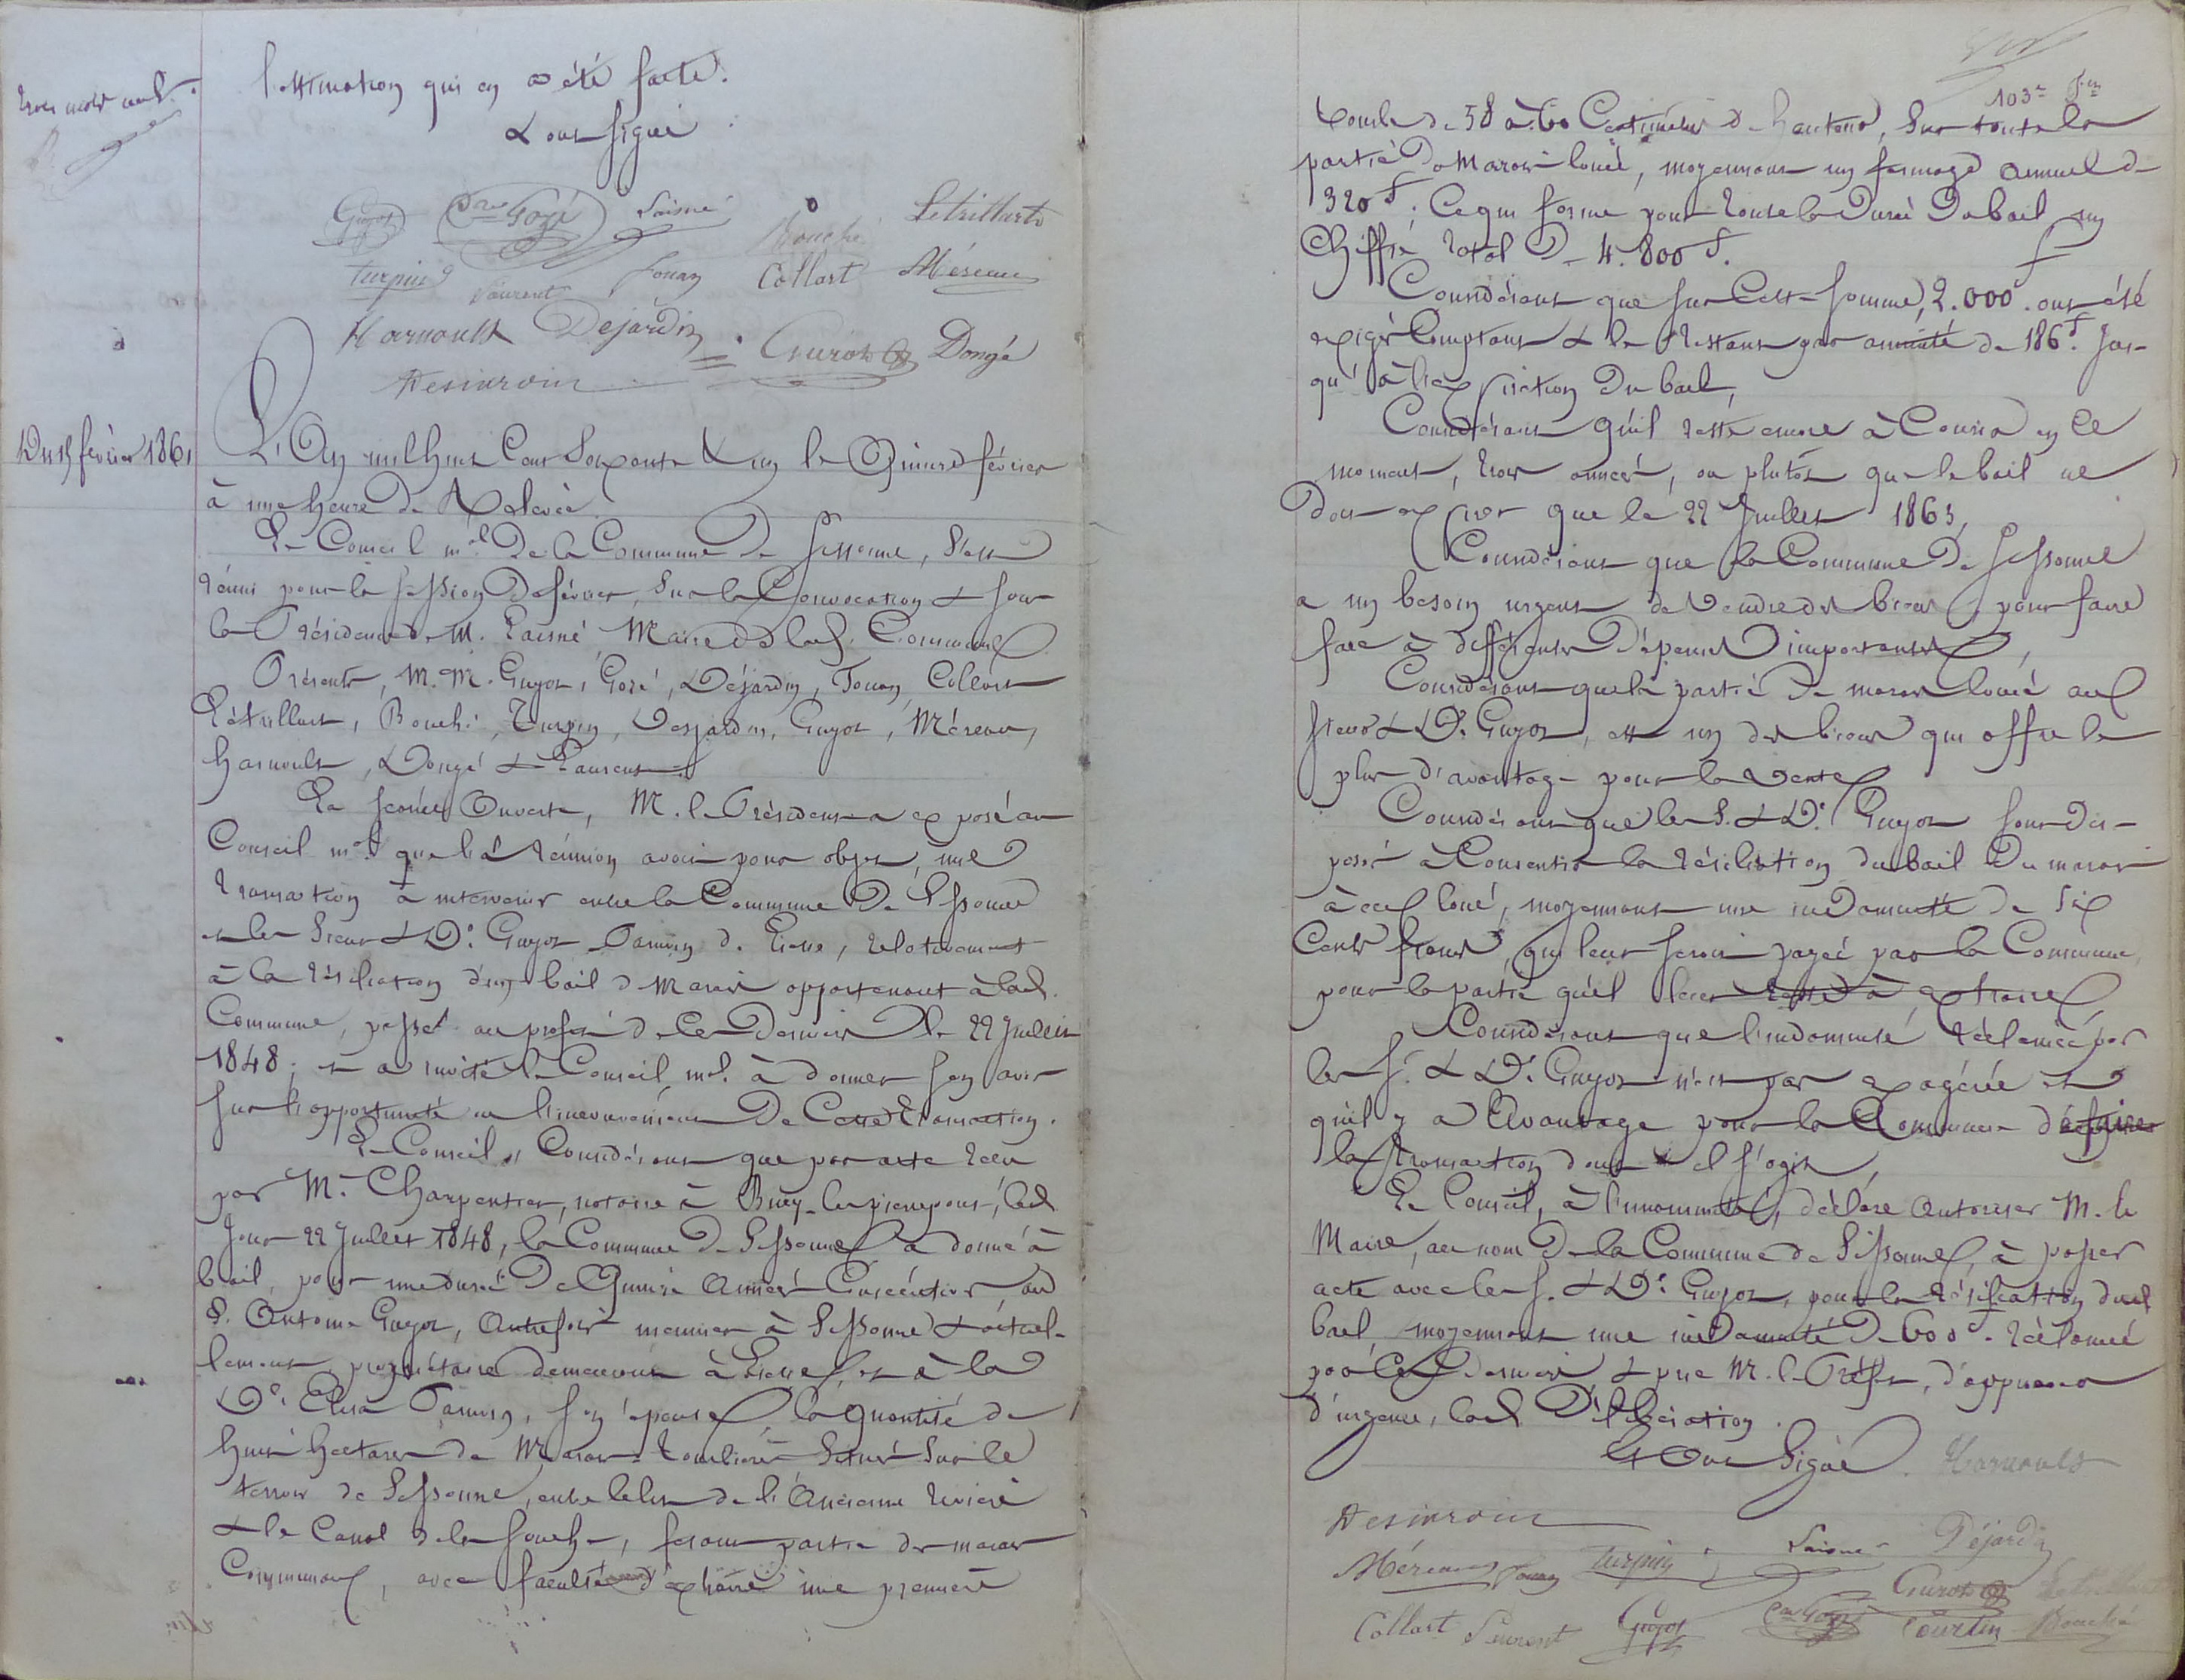 trois mots nuls.
l'estimation qui en a été faite.
& ont signé
Guyot Gozé Laisné Bouché Letrillart
Turpin Laurent Fouan Collart Méreau
Harnoult Dejardin Guiot Dongé
Du 15 février 1861
L'An mil huit Cent Soixante & un le Quinze février
à une heure de Relevée.
Le Conseil m.al De la Commune de Sissonne, S'est
réuni pour la Session de février, Sur la Convocation & sous
la Présidence de M. Laisné, Maire de lad. Commune
Présents, M.M. Guyot, Gozé, Déjardin, Fouan, Collart
Létrillart, Bouché, Turpin, Desjardin, Guyot, Méreau,
harnoult, Dongé & Laurent.
La Séance Ouverte, M. le Président a exposé au
Conseil m.al que la réunion avait pour objet, une
transaction à intervenir entre la Commune De Sissonne
et les Sieur & De. Guyot de Liesse, relativement
à la résiliation d'un bail de Marais appartenant à lad.
Commune, passé au profit de ces Derniers le 22 Juillet
1848; et a invité le Conseil m.al à donner son avis
sur l'opportunité ou l'inconvénient De Cette Transaction.
Le Conseil, Considérant que par acte reçu
par Me. Charpentier, notaire à Bucy-les-pierrepont, led.
Jour 22 Juillet 1848, la Commune de Sissonne a donné à
bail, pour une durée De Quinze Années Consécutives au
S. Antoine Guyot, Autrefois meunier à Sissonne & actuel-
lement propriétaire demeurant à Liesse, et à la
De. Elisa son épouse, la quantité de
huit hectares de Marais-Tourbières Situés Sur le
terroir de Sissonne, entre le lit de l'Ancienne rivière
& le Canal de la Souche, faisant partie des marais
Communaux, avec faculté d'extraire une première
103e f.et
tourbe de 58 à 60 Centimètres de hauteur, Sur toute la
partie De Marais louée, moyennant un fermage annuel de
320 f.; Ce qui forme pour toute la Durée Du bail un
Chiffre total De 4.800 f.
Considérant que sur Cette somme, 2.000 f. ont été
exigés Comptant & le Restant par annuité de 186 f. Jus-
qu'à l'expiration Du bail,
Considérant qu'il reste encore à Courir en Ce
moment, trois années, ou plutôt que le bail ne
Doit expirer que le 22 Juillet 1863,
Considérant que la Commune De Sissonne
a un besoin urgent de Vendre des biens, pour faire
face à différentes Dépenses importantes,
Considérant que la partie De marais louée aux
Sieur & De. Guyot, est un des biens qui offre le
plus d'avantage pour la Vente
Considérant que les S. & De. Guyot sont dis-
posés à Consentir la résiliation du bail Du marais
à eux loué, moyennant une indemnité de Six
Cents francs, qui leur serait payée par la Commune,
pour la partie qu'il leur reste à extraire,
Considérant que l'indemnité réclamée par
les S. & De. Guyot n'est pas exagérée et
qu'il y a Avantage pour la Commune de faire
la transaction dont il s'agit,
Le Conseil, à l'unanimité, déclare Autoriser M. le
Maire, au nom De la Commune de Sissonne, à passer
acte avec les S. & De. Guyot, pour la résiliation dud.
bail, moyennant une indemnité De 600 f. réclamée
par Ces derniers & prie M. le Préfet, d'approuver
d'urgence, lad. Délibération.
& Ont Signé. Harnoult
Laisné Déjardin
Méreau Fouan Turpin
Guiot Letrillart
Collart Laurent Guyot Gozé Courtin Bouché